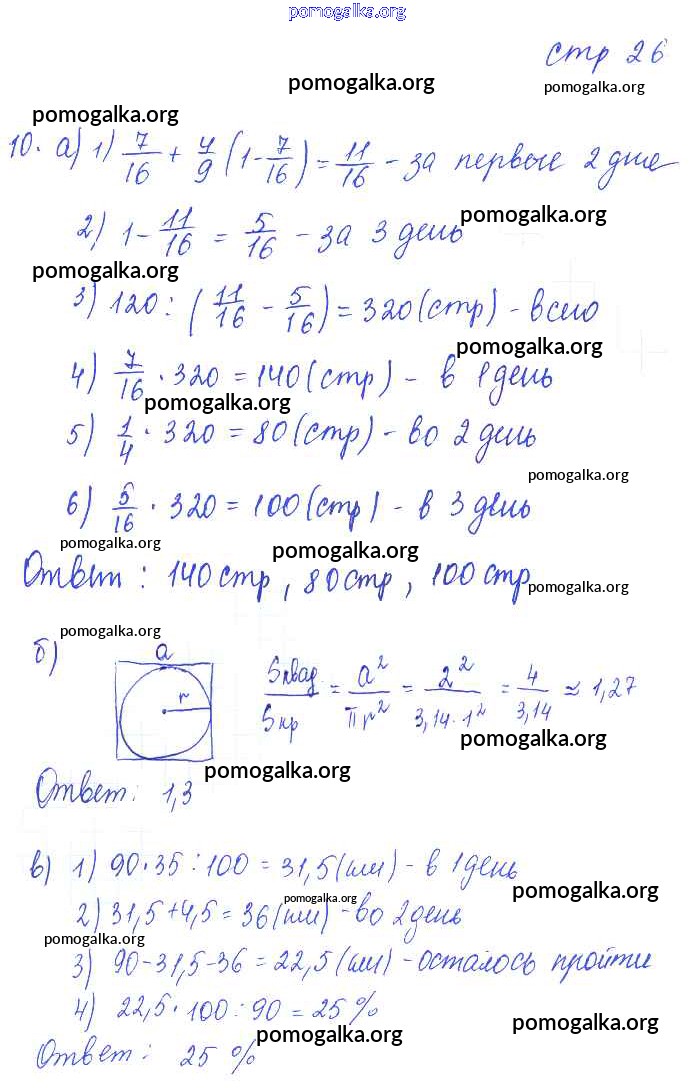 pomogalka.org
стр 26
pomogalka.org pomogalka.org
pomogalka.org
10. а) 1) 7/16 + 4/9 (1 - 7/16) = 11/16 - за первые 2 дне
pomogalka.org
2) 1 - 11/16 = 5/16 - за 3 день
pomogalka.org
3) 120 : (11/16 - 5/16) = 320 (стр) - всего
pomogalka.org
4) 7/16 · 320 = 140 (стр) - в 1 день
pomogalka.org
5) 1/4 · 320 = 80 (стр) - во 2 день
pomogalka.org
6) 5/16 · 320 = 100 (стр) - в 3 день
pomogalka.org pomogalka.org
Ответ: 140 стр, 80 стр, 100 стр
pomogalka.org
pomogalka.org
б) a r Sквад/Sкр = a²/πr² = 2²/3,14·1² = 4/3,14 ≈ 1,27
pomogalka.org
pomogalka.org
Ответ: 1,3
в) 1) 90·35:100 = 31,5 (км) - в 1 день
pomogalka.org pomogalka.org
2) 31,5+4,5 = 36 (км) - во 2 день
pomogalka.org
3) 90-31,5-36 = 22,5 (км) - осталось пройти
4) 22,5·100:90 = 25 %
pomogalka.org pomogalka.org
Ответ: 25 %